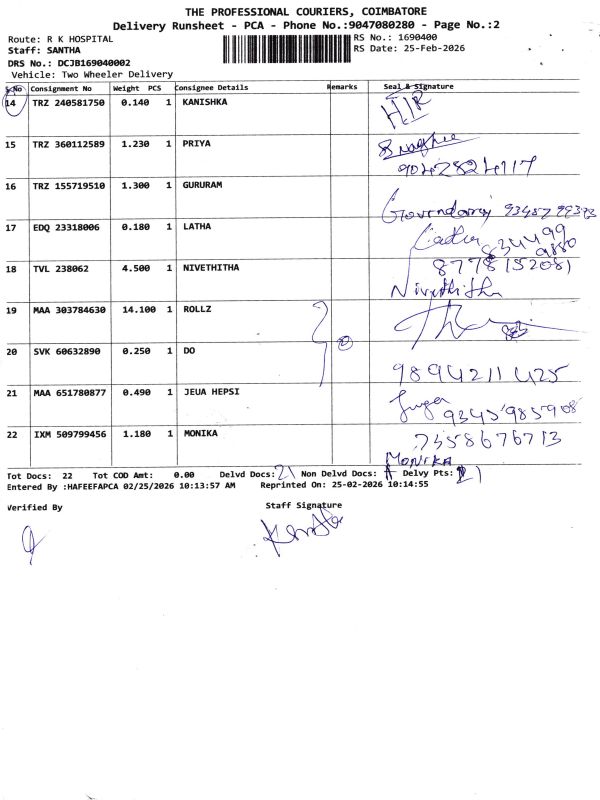 THE PROFESSIONAL COURIERS, COIMBATORE
Delivery Runsheet - PCA - Phone No.:9047080280 - Page No.:2
Route: R K HOSPITAL RS No.: 1690400
Staff: SANTHA RS Date: 25-Feb-2026
DRS No.: DCJB169040002
Vehicle: Two Wheeler Delivery
S.No Consignment No Weight PCS Consignee Details Remarks Seal & Signature
14 TRZ 240581750 0.140 1 KANISHKA
15 TRZ 360112589 1.230 1 PRIYA
9042824117
16 TRZ 155719510 1.300 1 GURURAM
17 EDQ 23318006 0.180 1 LATHA
Latha
18 TVL 238062 4.500 1 NIVETHITHA
8778152081
Nivethitha
19 MAA 303784630 14.100 1 ROLLZ
20 SVK 60632890 0.250 1 DO
9894211425
21 MAA 651780877 0.490 1 JEUA HEPSI
22 IXM 509799456 1.180 1 MONIKA
7358676713
MONIKA
Tot Docs: 22 Tot COD Amt: 0.00 Delvd Docs: 21 Non Delvd Docs: Delvy Pts: 21
Entered By :HAFEEFAPCA 02/25/2026 10:13:57 AM Reprinted On: 25-02-2026 10:14:55
Verified By Staff Signature